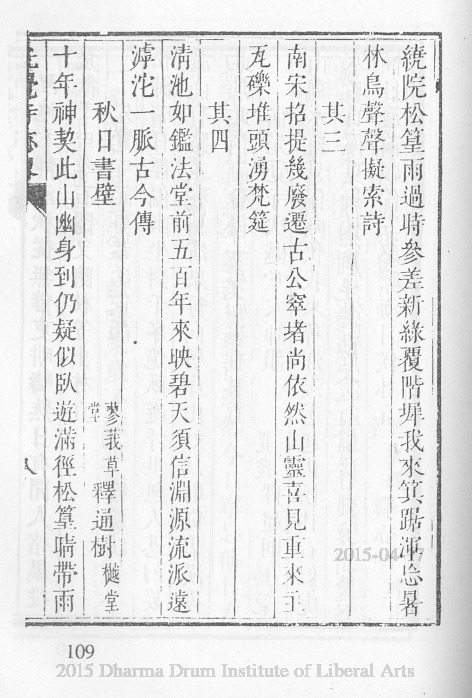 繞院松篁雨過時參差新綠覆階墀我來箕踞渾忘暑
林鳥聲聲擬索詩
其三
南宋招提幾廢遷古公窣堵尚依然山靈喜見重來主
瓦礫堆頭湧梵筵
其四
清池如鑑法堂前五百年來映碧天須信淵源流派遠
滹沱一脈古今傳
秋日書壁 蓼莪草堂 釋通樹 樾堂
十年神契此山幽身到仍疑似臥遊滿徑松篁晴帶雨
八
109
2015-04-17
2015 Dharma Drum Institute of Liberal Arts